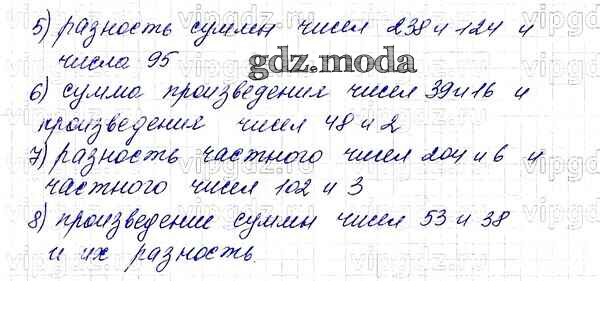 5) разность суммы чисел 238 и 124 и
числа 95
gdz.moda
6) сумма произведения чисел 39 и 16 и
произведения чисел 48 и 2
7) разность частного чисел 204 и 6 и
частного чисел 102 и 3
8) произведение суммы чисел 53 и 38
и их разность.